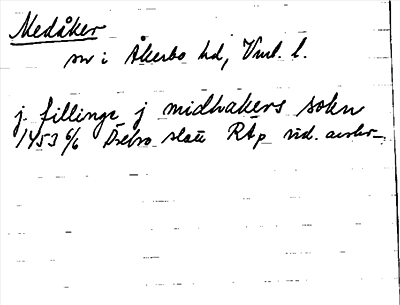 Medåker
sn i Åkerbo hd, Vml. l.
j. fillinge j midhakers sokn
1453 6/6 Örebro slott RAp vid. avskr.